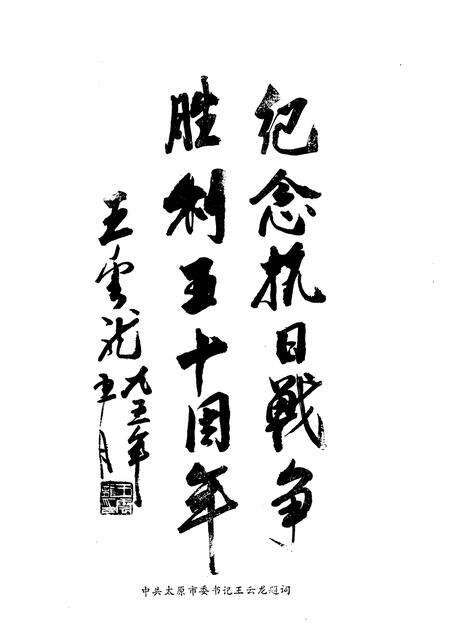 纪念抗日战争
胜利五十周年
王雲龙
九五年
五月
中共太原市委书记王云龙题词